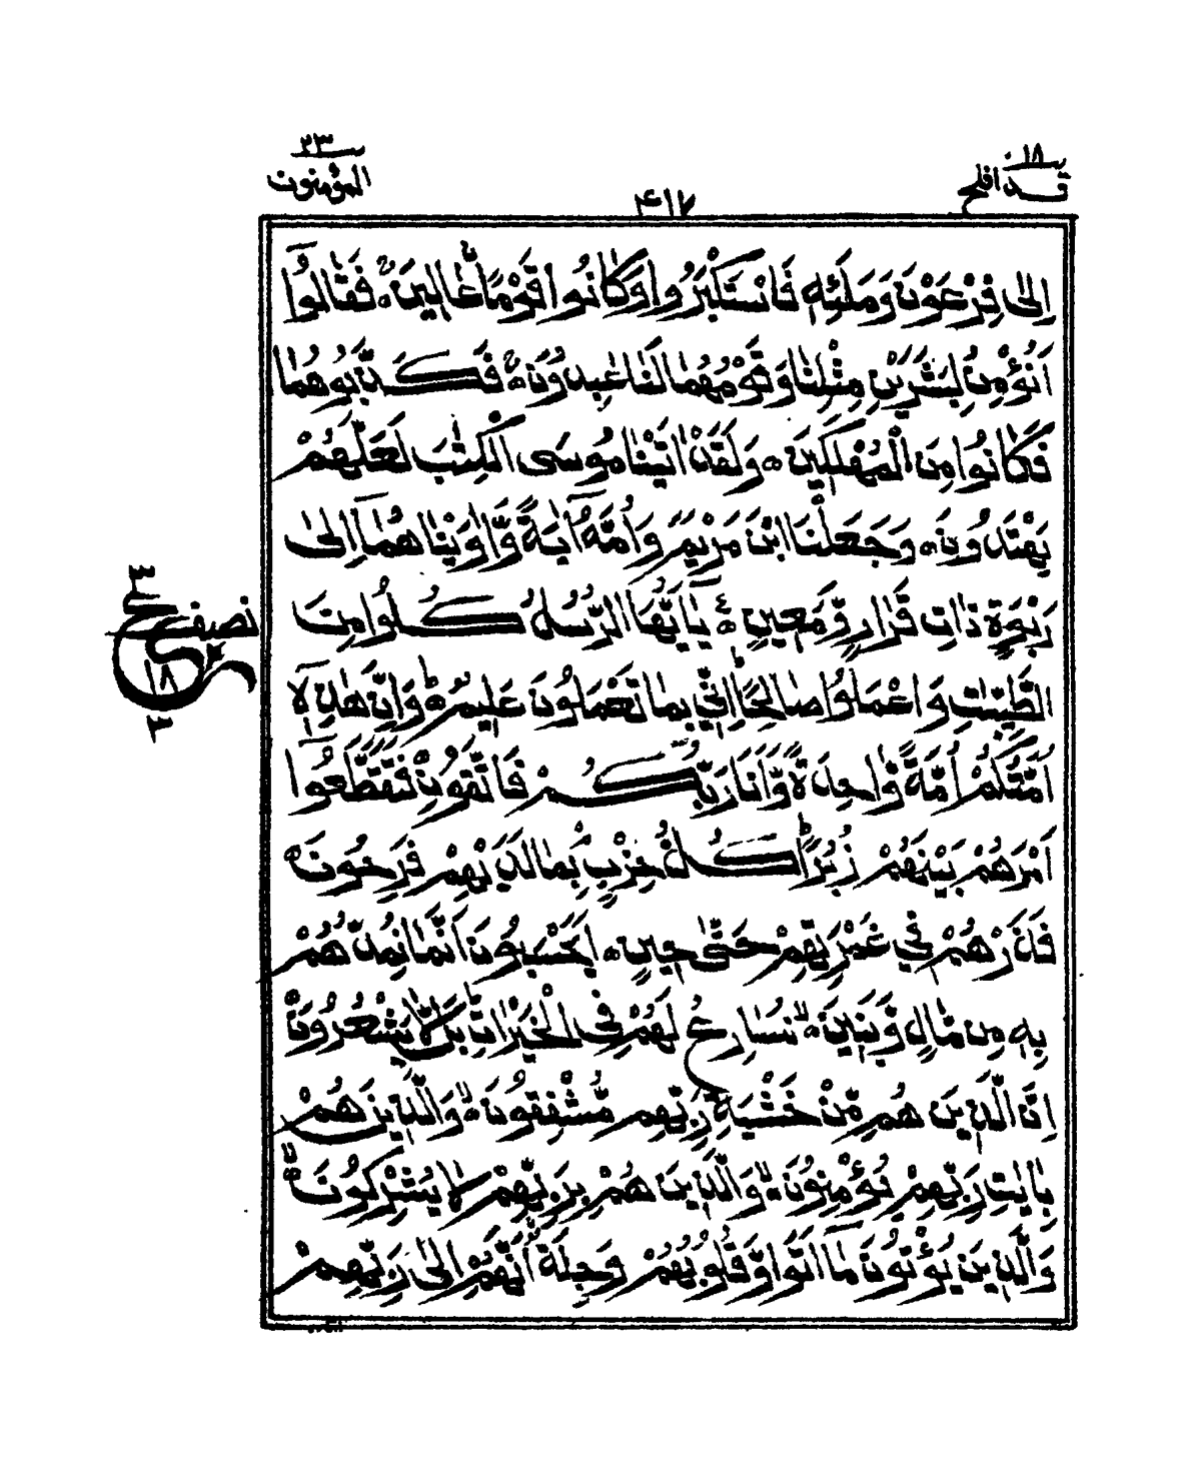 ١٨
قد افلح
٤١٧
٢٣
المؤمنون
اِلٰى فِرْعَوْنَ وَمَلَا۟ئِهٖ فَاسْتَكْبَرُوْا وَكَانُوْا قَوْمًا عَالِيْنَ ۚ فَقَالُوْٓا
اَنُؤْمِنُ لِبَشَرَيْنِ مِثْلِنَا وَقَوْمُهُمَا لَنَا عٰبِدُوْنَ ۚ فَكَذَّبُوْهُمَا
فَكَانُوْا مِنَ الْمُهْلَكِيْنَ ۞ وَلَقَدْ اٰتَيْنَا مُوْسَى الْكِتٰبَ لَعَلَّهُمْ
يَهْتَدُوْنَ ۞ وَجَعَلْنَا ابْنَ مَرْيَمَ وَاُمَّهٗٓ اٰيَةً وَّاٰوَيْنٰهُمَآ اِلٰى
رَبْوَةٍ ذَاتِ قَرَارٍ وَّمَعِيْنٍ ۞ يٰٓاَيُّهَا الرُّسُلُ كُلُوْا مِنَ
الطَّيِّبٰتِ وَاعْمَلُوْا صَالِحًا ؕ اِنِّيْ بِمَا تَعْمَلُوْنَ عَلِيْمٌ ؕ وَاِنَّ هٰذِهٖٓ
اُمَّتُكُمْ اُمَّةً وَّاحِدَةً وَّاَنَا رَبُّكُمْ فَاتَّقُوْنِ فَتَقَطَّعُوْٓا
اَمْرَهُمْ بَيْنَهُمْ زُبُرًا ؕ كُلُّ حِزْبٍ بِۢمَا لَدَيْهِمْ فَرِحُوْنَ ۞
فَذَرْهُمْ فِيْ غَمْرَتِهِمْ حَتّٰى حِيْنٍ ۞ اَيَحْسَبُوْنَ اَنَّمَا نُمِدُّهُمْ
بِهٖ مِنْ مَّالٍ وَّبَنِيْنَ ۙ نُسَارِعُ لَهُمْ فِى الْخَيْرٰتِ ؕ بَلْ لَّا يَشْعُرُوْنَ
اِنَّ الَّذِيْنَ هُمْ مِّنْ خَشْيَةِ رَبِّهِمْ مُّشْفِقُوْنَ ۙ وَالَّذِيْنَ هُمْ
بِاٰيٰتِ رَبِّهِمْ يُؤْمِنُوْنَ ۙ وَالَّذِيْنَ هُمْ بِرَبِّهِمْ لَا يُشْرِكُوْنَ ۙ
وَالَّذِيْنَ يُؤْتُوْنَ مَآ اٰتَوْا وَّقُلُوْبُهُمْ وَجِلَةٌ اَنَّهُمْ اِلٰى رَبِّهِمْ
نصف
٣
١٨
٣